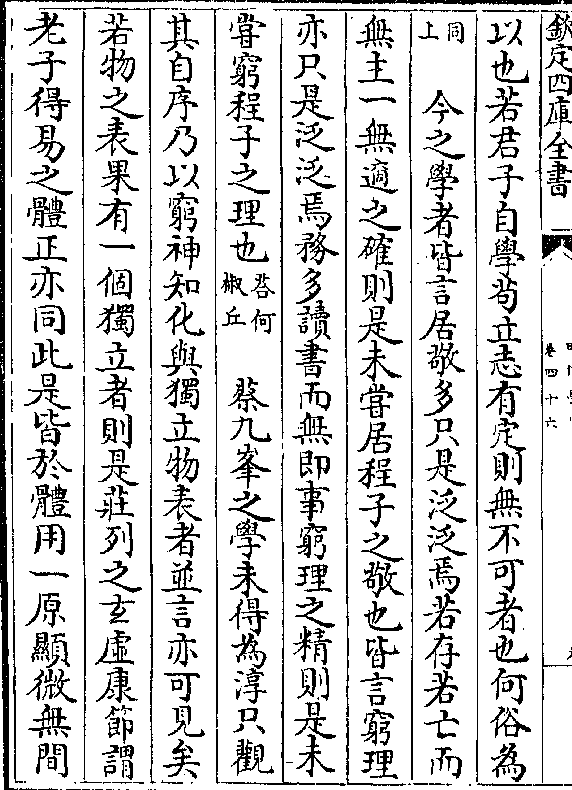 欽定四庫全書
卷四十六
以也若君子自學苟立志有定則無不可者也何俗為
同上　今之學者皆言居敬多只是泛泛焉若存若亡而
無主一無適之確則是未嘗居程子之敬也皆言窮理
亦只是泛泛焉務多讀書而無即事窮理之精則是未
嘗窮程子之理也答何椒丘　蔡九峯之學未得為淳只觀
其自序乃以窮神知化與獨立物表者並言亦可見矣
若物之表果有一個獨立者則是莊列之玄虛康節謂
老子得易之體正亦同此是皆於體用一原顯微無間